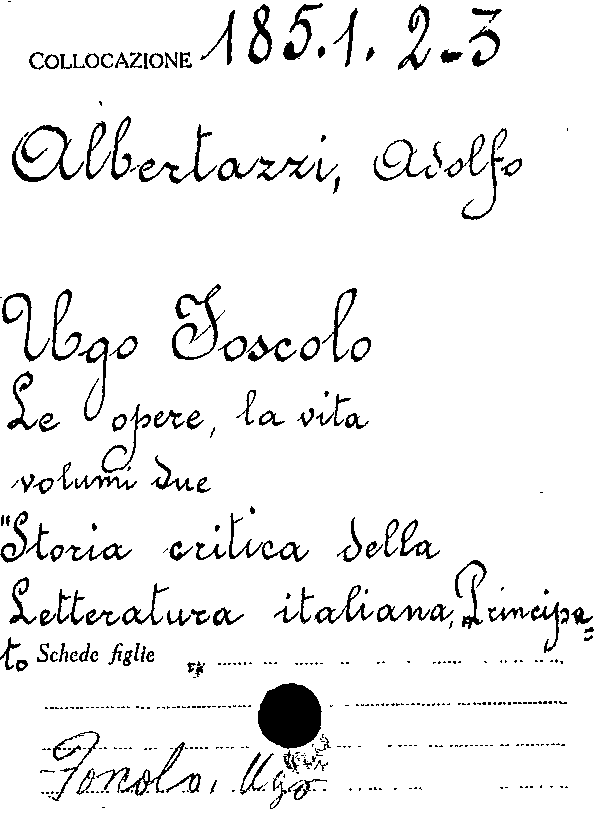 COLLOCAZIONE 185.1. 2-3
Albertazzi, Adolfo
Ugo Foscolo
Le opere, la vita
volumi due
"Storia critica della
Letteratura italiana, „Principa=
to Schede figlie
Foscolo, Ugo